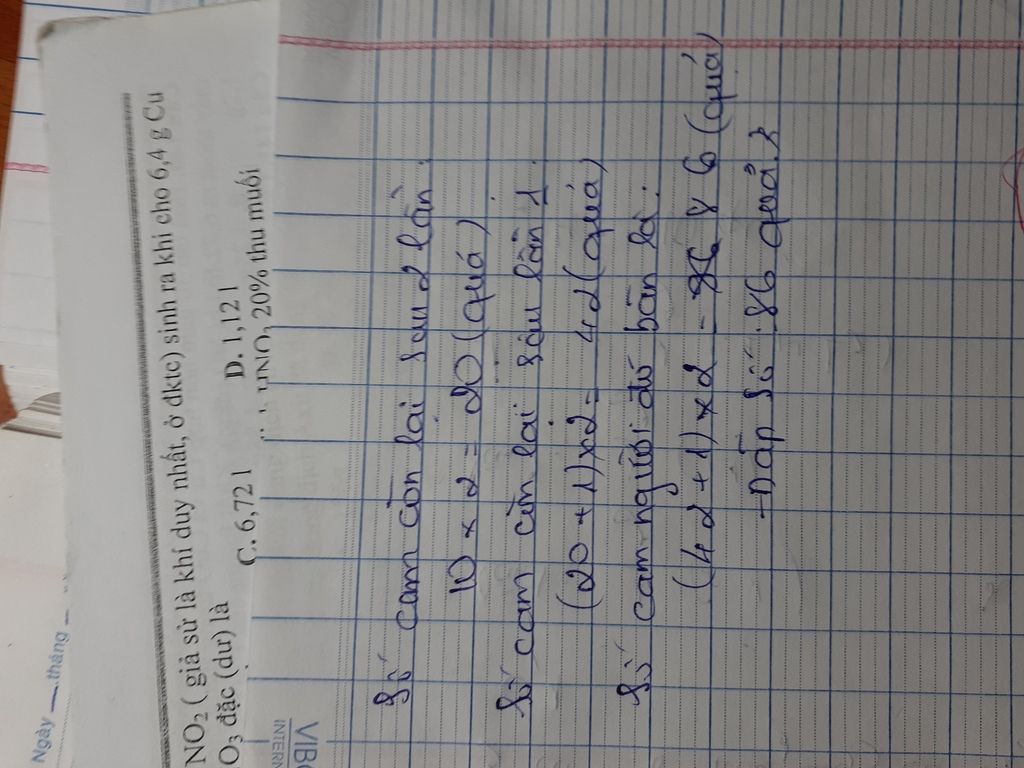 Ngày tháng
NO₂ ( giả sử là khí duy nhất, ở đktc) sinh ra khi cho 6,4 g Cu
O₃ đặc (dư) là
C. 6,72 l D. 1,12 l
HNO₃ 20% thu muối
INTERN
Số cam còn lại sau 2 lần:
10 x 2 = 20 (quả)
Số cam còn lại sau lần 1:
(20 + 1) x 2 = 42 (quả)
Số cam người đó bán là:
(42 + 1) x 2 = 86 (quả)
Đáp số: 86 quả.